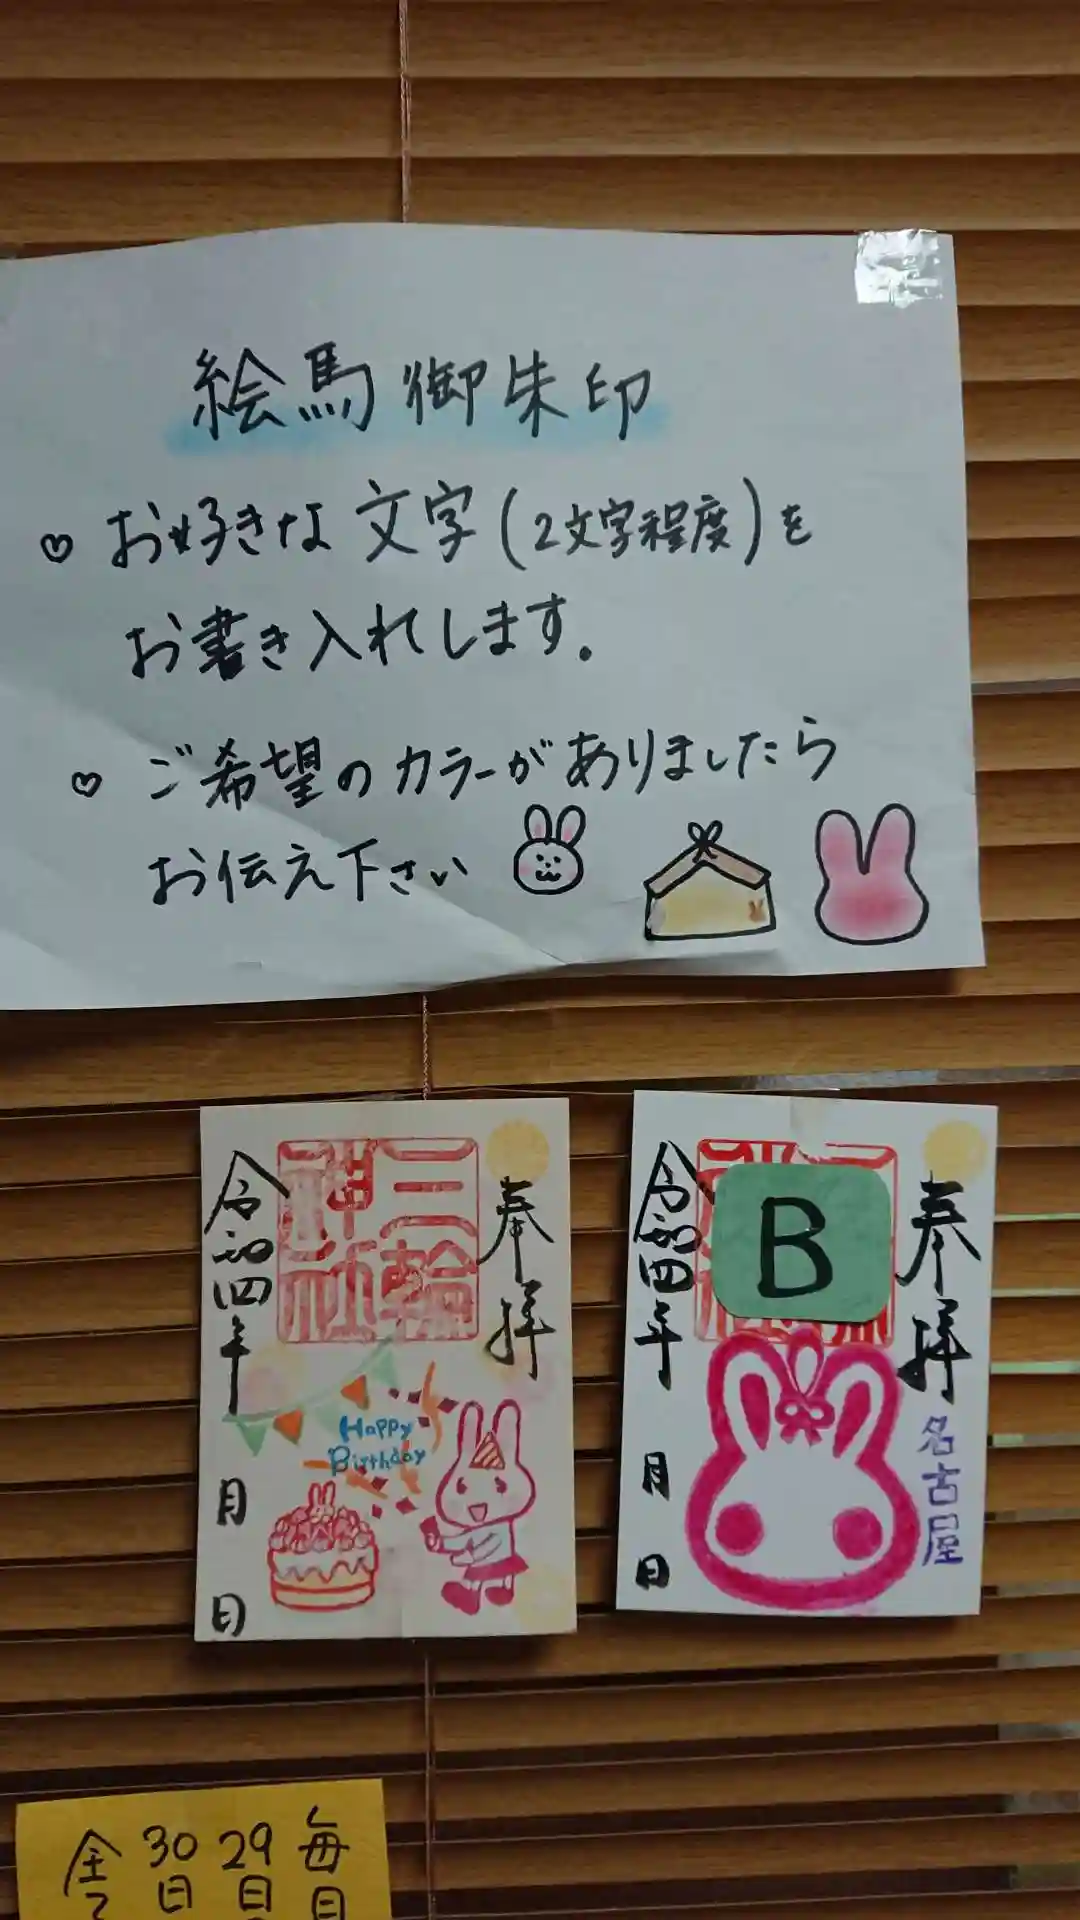 絵馬御朱印
♡ お好きな文字(2文字程度)を
お書き入れします。
♡ ご希望のカラーがありましたら
お伝え下さい
奉拝
三輪
神社
令和四年 月 日
Happy
Birthday
奉拝
名古屋
B
令和四年 月 日
毎日
29日
30日
全て